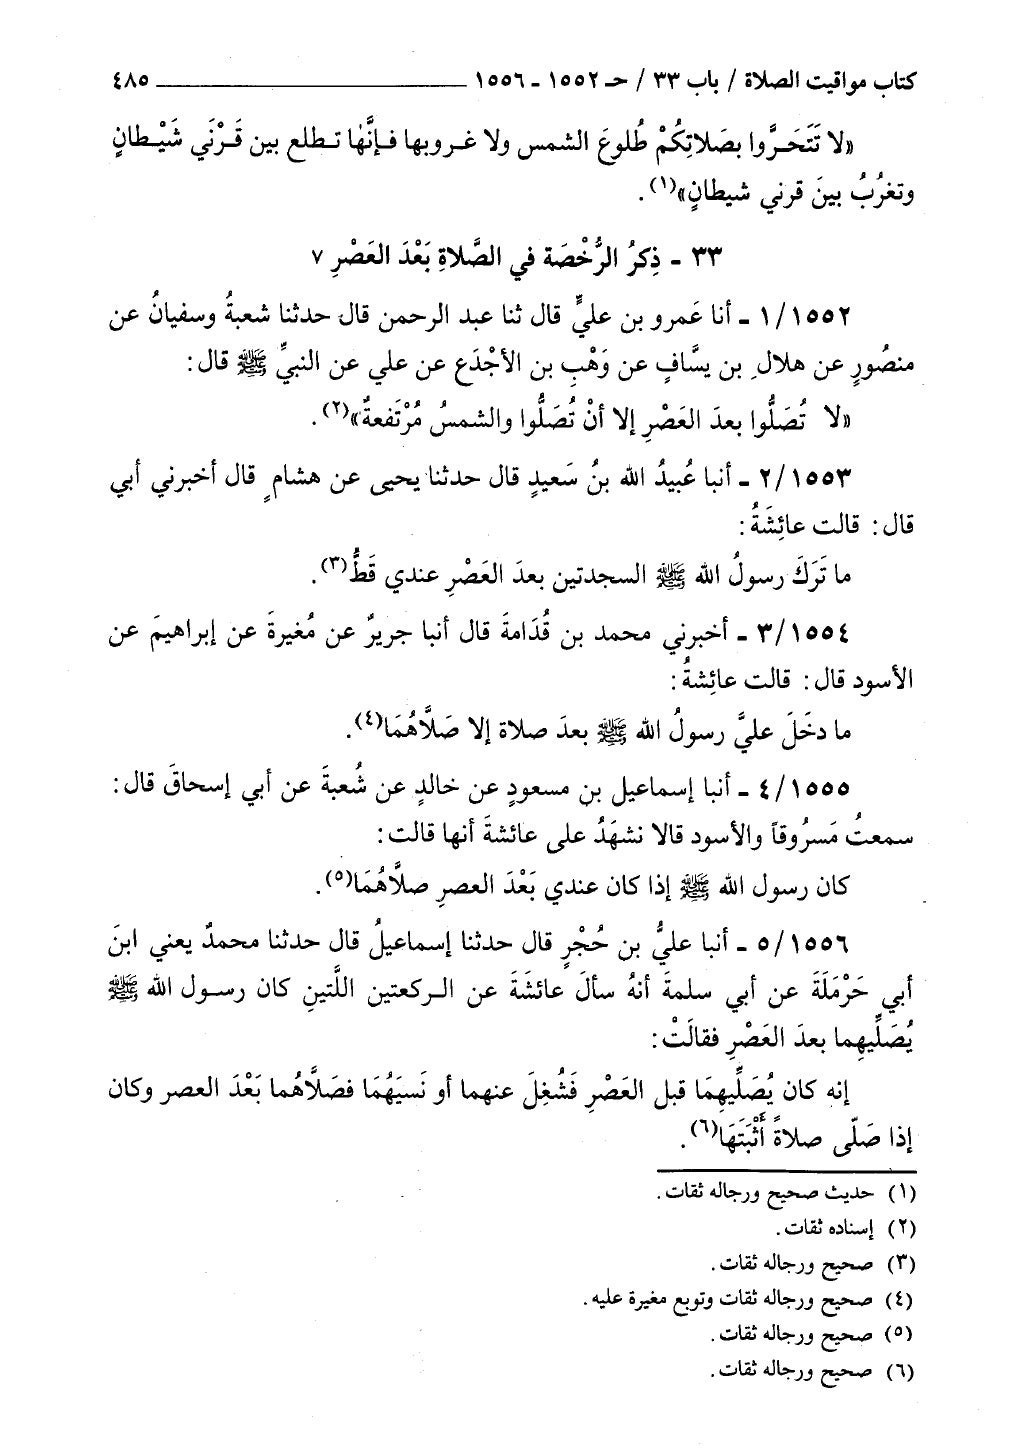 كتاب مواقيت الصلاة / باب ٣٣ / حـ ١٥٥٢ - ١٥٥٦ ٤٨٥
«لا تَتَحَرَّوا بصَلاتِكُمْ طُلوعَ الشمس ولا غروبها فإنَّها تطلع بين قَرْنَي شَيْطانٍ
وتغرُبُ بينَ قرني شيطانٍ»(١).
٣٣ - ذِكرُ الرُّخْصَة في الصَّلاةِ بَعْدَ العَصْرِ ٧
١/١٥٥٢ - أنا عَمرو بن عليٍّ قال ثنا عبد الرحمن قال حدثنا شعبةُ وسفيانُ عن
منصُورٍ عن هلالِ بن يسَّافٍ عن وَهْبِ بن الأجْدَع عن علي عن النبيِّ ﷺ قال:
«لا تُصَلُّوا بعدَ العَصْرِ إلا أنْ تُصَلُّوا والشمسُ مُرْتَفعةٌ»(٢).
٢/١٥٥٣ - أنبا عُبيدُ الله بنُ سَعيدٍ قال حدثنا يحيى عن هشامٍ قال أخبرني أبي
قال: قالت عائِشَةُ:
ما تَرَكَ رسولُ الله ﷺ السجدتين بعدَ العَصْرِ عندي قَطُّ(٣).
٣/١٥٥٤ - أخبرني محمد بن قُدَامةَ قال أنبا جريرٌ عن مُغيرةَ عن إبراهيمَ عن
الأسود قال: قالت عائِشةُ:
ما دخَلَ عليَّ رسولُ الله ﷺ بعدَ صلاة إلا صَلَّاهُمَا(٤).
٤/١٥٥٥ - أنبا إسماعيل بن مسعودٍ عن خالدٍ عن شُعبةَ عن أبي إسحاقَ قال:
سمعتُ مَسرُوقاً والأسود قالا نشهَدُ على عائشةَ أنها قالت:
كان رسول الله ﷺ إذا كان عندي بَعْدَ العصرِ صلاَّهُمَا(٥).
٥/١٥٥٦ - أنبا عليُّ بن حُجْرٍ قال حدثنا إسماعيلُ قال حدثنا محمدٌ يعني ابنَ
أبي حَرْمَلَةَ عن أبي سلمةَ أنهُ سألَ عائشَةَ عن الركعتين اللَّتينِ كان رسول الله ﷺ
يُصَلِّيهِما بعدَ العَصْرِ فقالَتْ:
إنه كان يُصَلِّيهِمَا قبل العَصْرِ فَشُغِلَ عنهما أو نَسيَهُمَا فصَلَّاهُما بَعْدَ العصر وكان
إذا صَلّى صلاةً أَثْبَتَهَا(٦).
(١) حديث صحيح ورجاله ثقات.
(٢) إسناده ثقات.
(٣) صحيح ورجاله ثقات.
(٤) صحيح ورجاله ثقات وتوبع مغيرة عليه.
(٥) صحيح ورجاله ثقات.
(٦) صحيح ورجاله ثقات.